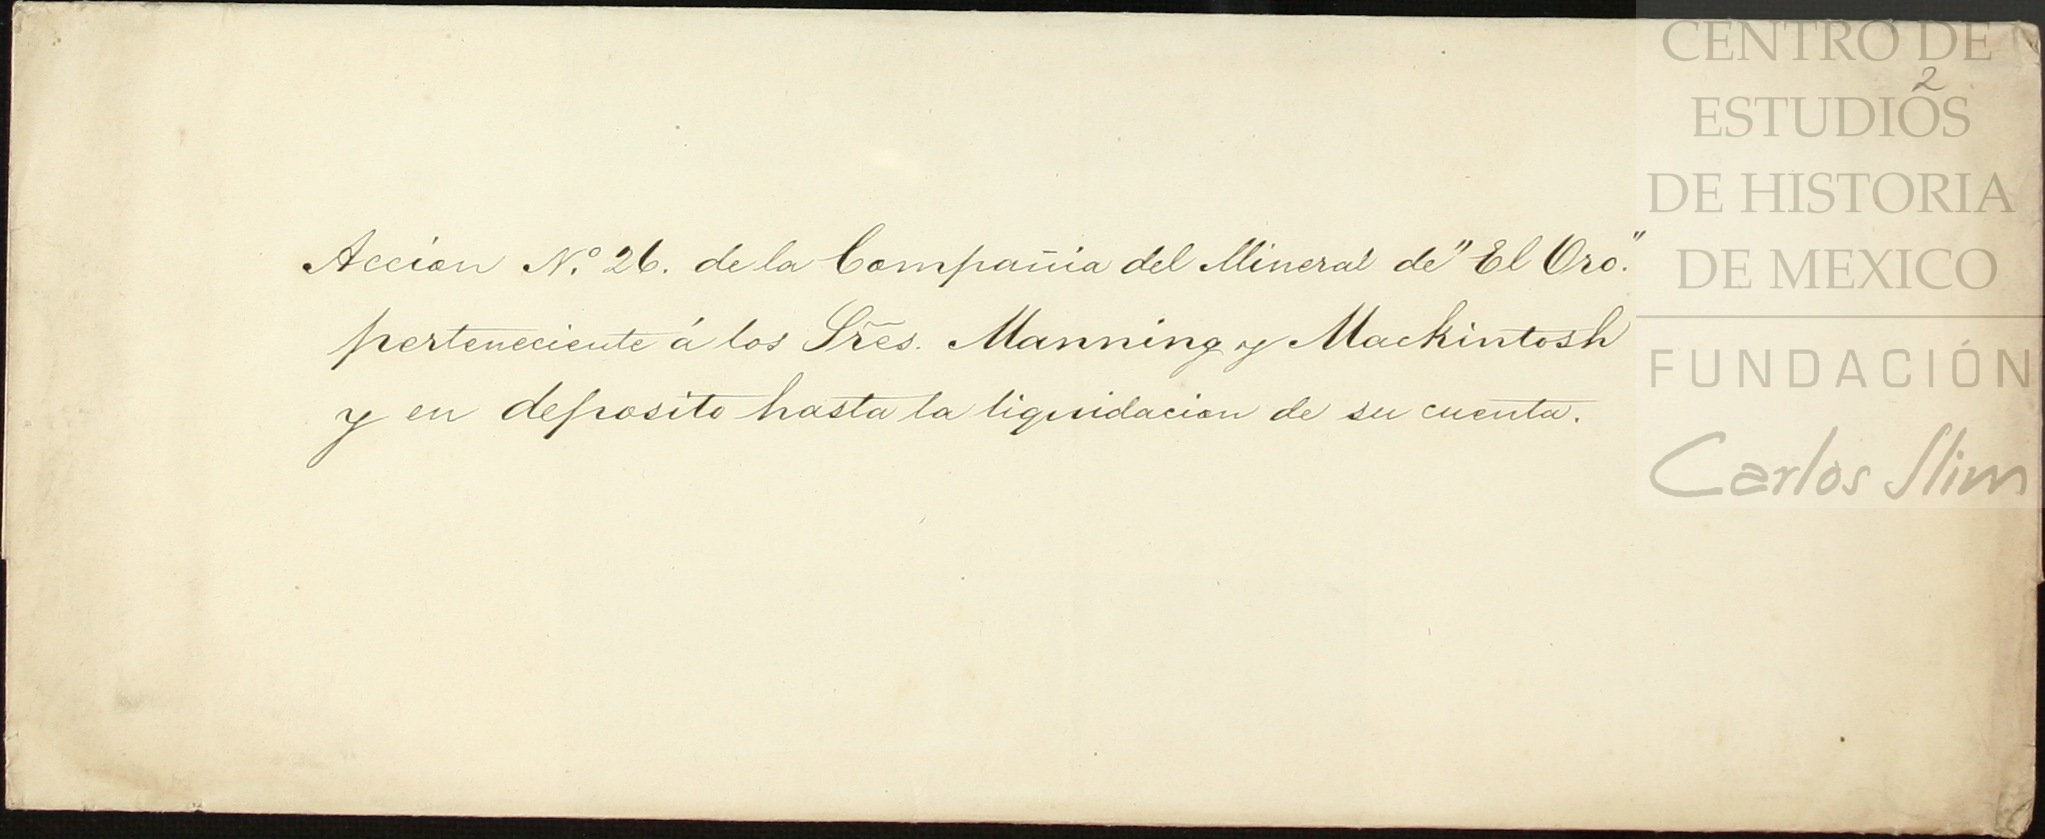 CENTRO DE
2
ESTUDIOS
DE HISTORIA
DE MEXICO
FUNDACIÓN
Carlos Slim
Accion N.º 26. de la Compañia del Mineral de "El Oro".
perteneciente á los Sres. Manning y Mackintosh
y en deposito hasta la liquidacion de su cuenta.